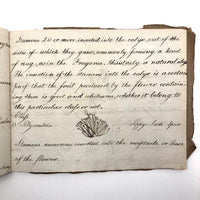 Stamens 20 or more inserted into the calyx, out of the
sides of which they grow, commonly forming a kind
of ring, as in the Fragaria. This is truly a natural class
The insertion of the stamens into the calyx is a certain
proof that the fruit produced by the flower contain-
ing them is good and wholesome, whether it belong to
this particular class or not.
Class
Polyandria
Stamens numerous inserted into the receptacle or base
of the flower.